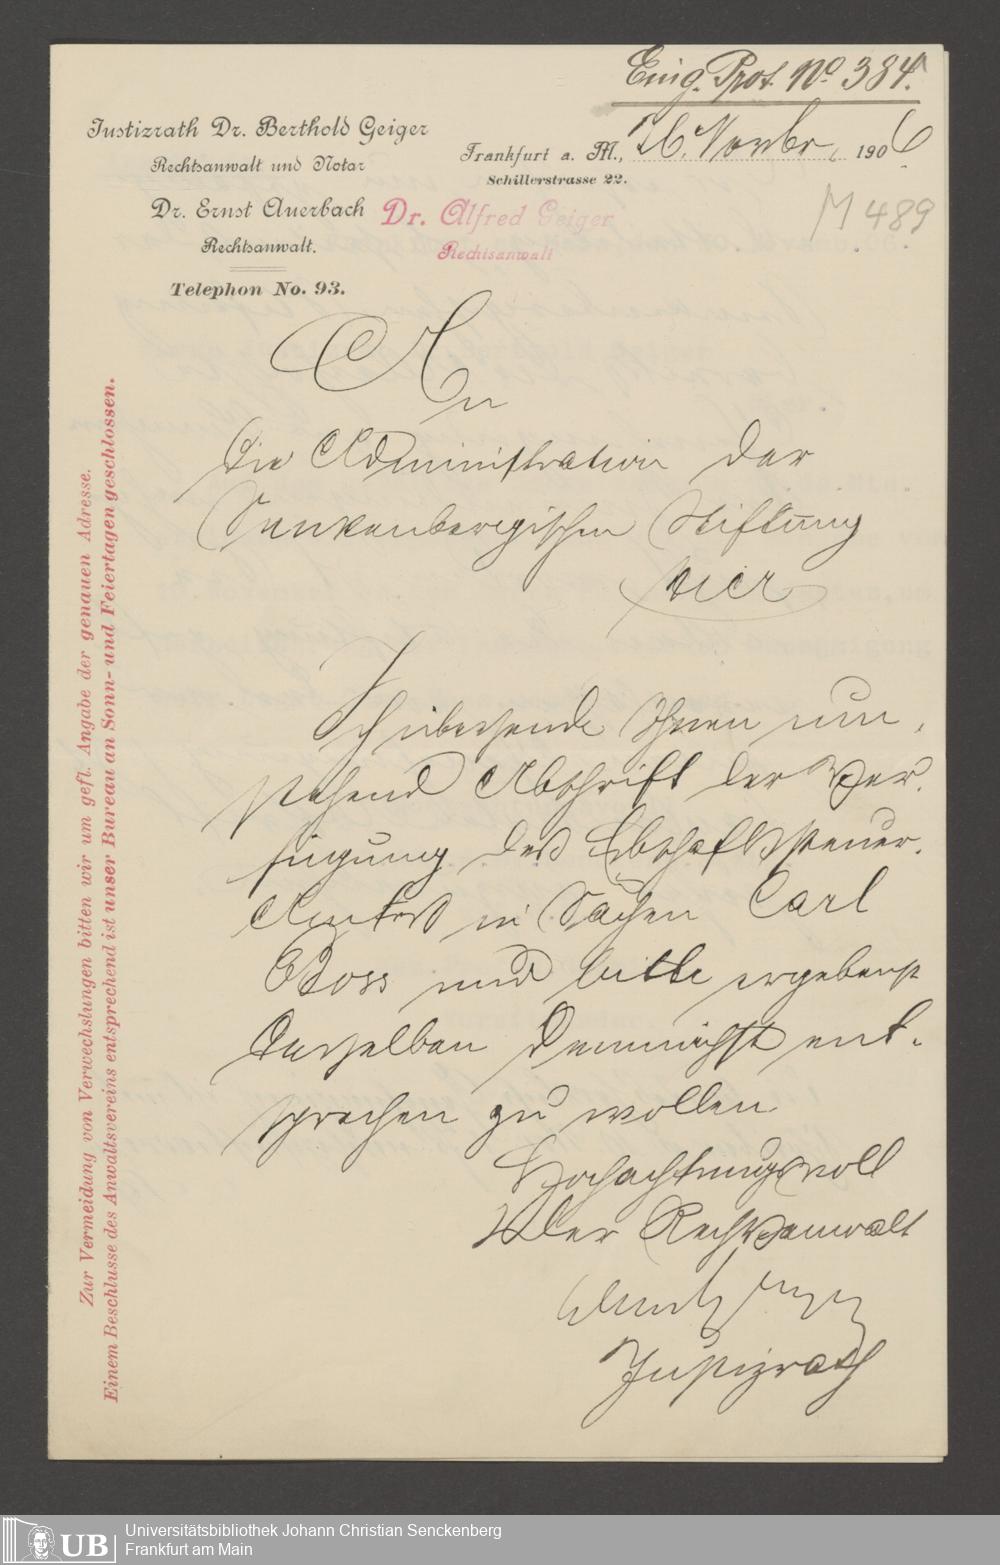 Eing. Prot. No. 384.
Justizrath Dr. Berthold Geiger
Rechtsanwalt und Notar
Dr. Ernst Auerbach
Rechtsanwalt.
Telephon No. 93.
Frankfurt a. M., 26. Novbr. 1906
Schillerstrasse 22.
Dr. Alfred Geiger
Rechtsanwalt
M 489
An
die Administration der
Senckenbergischen Stiftung
hier
Ich übersende Ihnen um-
stehend Abschrift der Ver-
fügung des Erbschaftssteuer-
Amtes in Sachen Carl
Boss und bitte ergebenst
derselben demnächst ent-
sprechen zu wollen
Hochachtungsvoll
Der Rechtsanwalt
Justizrath
Zur Vermeidung von Verwechslungen bitten wir um gefl. Angabe der genauen Adresse.
Einem Beschlusse des Anwaltsvereins entsprechend ist unser Bureau an Sonn- und Feiertagen geschlossen.
UB
Universitätsbibliothek Johann Christian Senckenberg
Frankfurt am Main